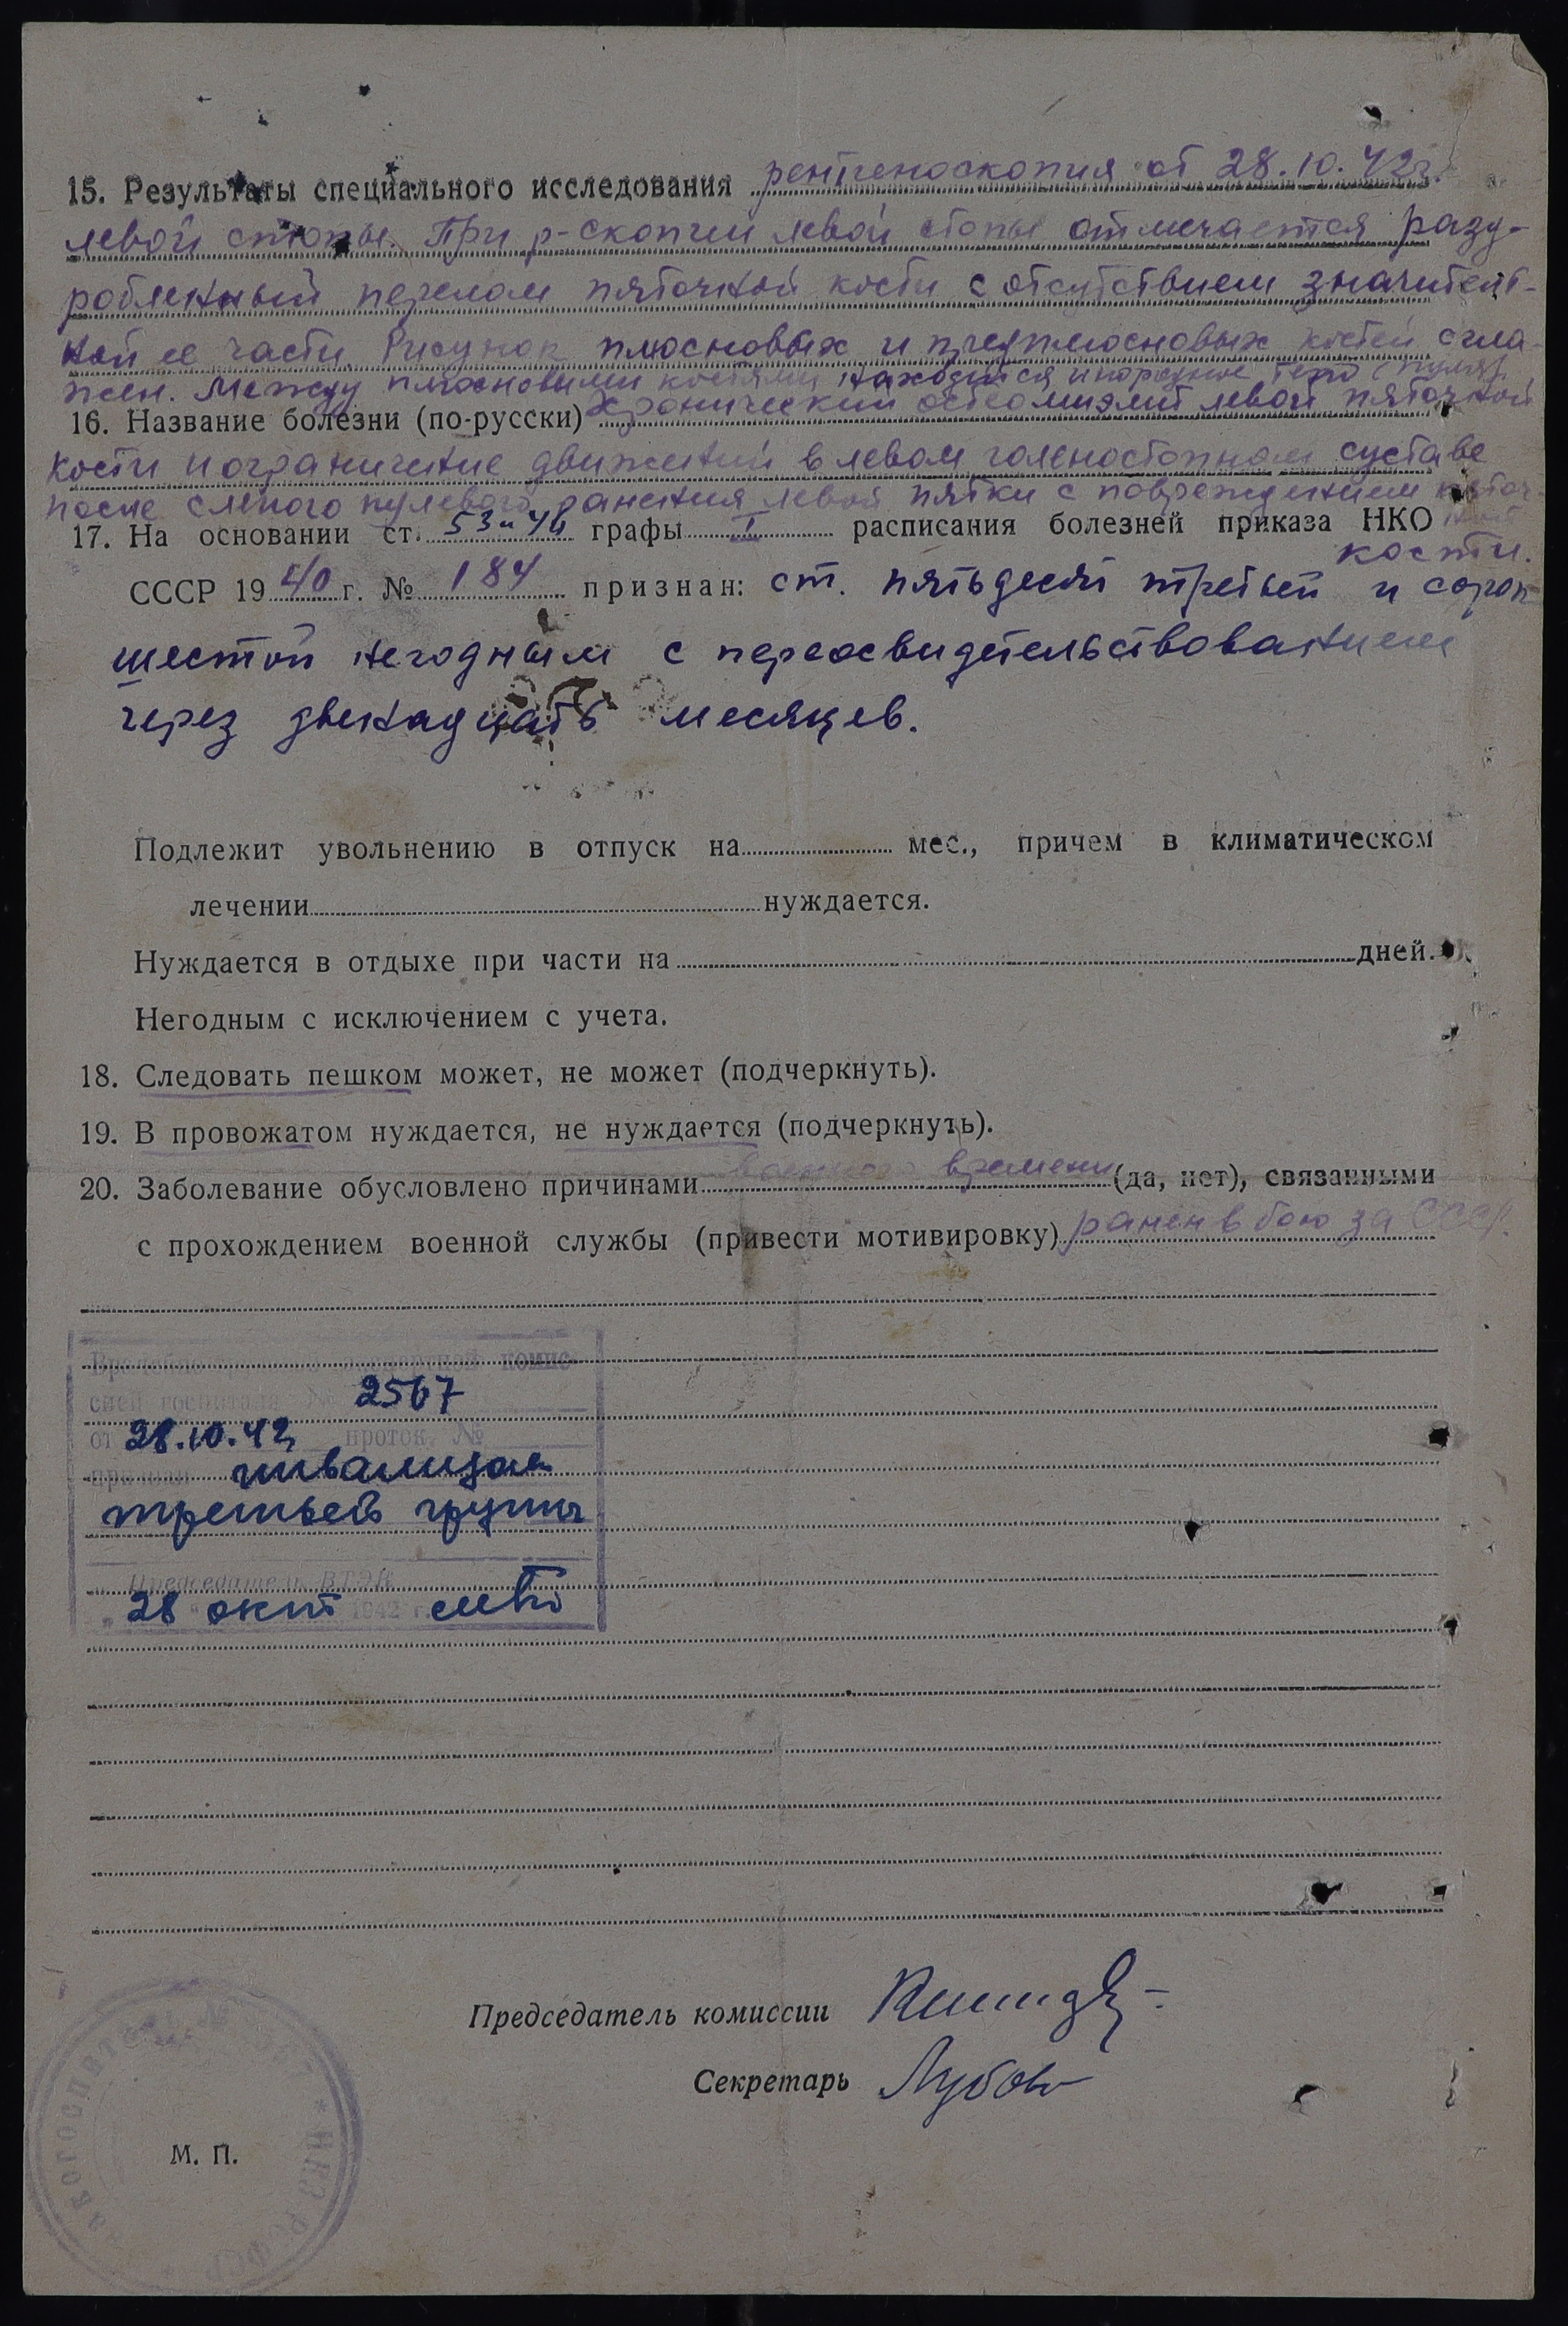 15. Результаты специального исследования рентгеноскопия от 28.10.42г.
левой стопы. При р-скопии левой стопы отмечается разд-
робленный перелом пяточной кости с отсутствием значитель-
ной ее части. Рисунок плюсновых и предплюсновых костей сгла-
жен. Между плюсновыми костями находится инородное тело (пуля).
16. Название болезни (по-русски) Хронический остеомиэлит левой пяточной
кости и ограничение движений в левом голеностопном суставе
после слепого пулевого ранения левой пятки с повреждением пяточ-
ной
17. На основании ст. 53 и 46 графы I расписания болезней приказа НКО
кости.
СССР 1940 г. № 184 признан: ст. пятьдесят третьей и сорок
шестой негодным с переосвидетельствованием
через двенадцать месяцев.
Подлежит увольнению в отпуск на мес., причем в климатическом
лечении нуждается.
Нуждается в отдыхе при части на дней.
Негодным с исключением с учета.
18. Следовать пешком может, не может (подчеркнуть).
19. В провожатом нуждается, не нуждается (подчеркнуть).
20. Заболевание обусловлено причинами военного времени (да, нет), связанными
с прохождением военной службы (привести мотивировку) ранен в бою за СССР.
Врачебно экспертной комис-
сией госпиталя № 2567
от 28.10.42 проток. №
признан инвалидом
третьей группы
Председатель ВТЭК
28 окт 1942 г.
Председатель комиссии
Секретарь
М. П.